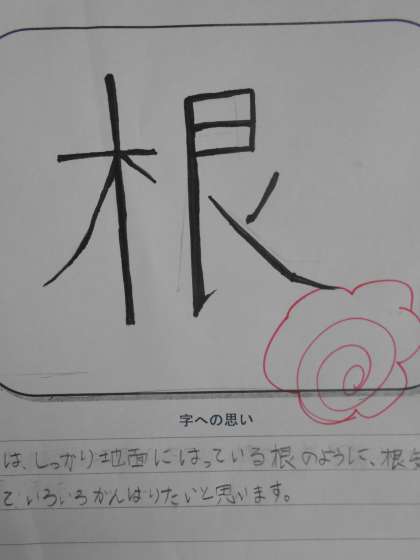 根
字への思い
は、しっかり地面にはっている根のように、根気
て、いろいろがんばりたいと思います。